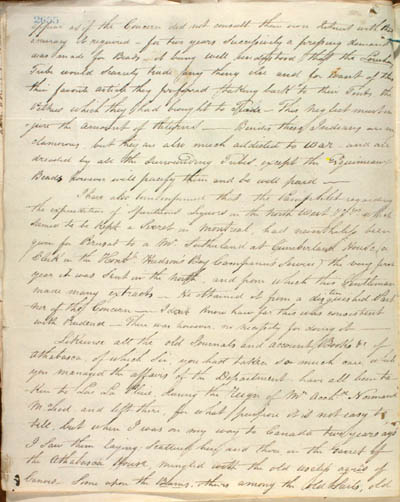 2655
appear as if the Concern did not consult their own interest with the
industry it required - for two years successively a pressing demand
was made for Beads - it being well understood that the
Tribe would scarcely trade any thing else and for want of this
their favorite article they preferred taking back to their Tents the
Peltries which they had brought to Trade - This neglect must in
jure the amount of the trade - Besides these Indians are
clamorous, but they are also much addicted to War - and are
dreaded by all the surrounding Tribes except the Esquimaux
Beads however will pacify them and be well paid -
I have also understood that the Pamphlet regarding
the expectation of Spirituous Liquors in the North West which
seems to be kept a Secret in Montreal, had nevertheless been
given for Perusal to a Mr. Sutherland at Cumberland House, a
Clerk in the Honble. Hudsons Bay Companys Service, the very first
year it was sent in the North, and from which this Gentleman
made many extracts - He obtained it from a distinguished Part
ner of the Concern - I dont know how far this was consistent
with Prudence - There was however no necessity for doing it -
Likewise all the old Journals and account Books &c of
Athabasca, of which Sir, you had taken so much care, while
you managed the affairs of the Department have all been ta
ken to Lac La Pluie, during the reign of Mr. Archd. Norman
McLeod and left there, for what purpose it is not easy to
tell, but when I was on my way to Canada two years ago
I saw them laying scattered here and there in the Garret of
the Athabasca House, mingled with the old useless agrès of
Canoes. Some upon the Beams, others among the old Kettles, old